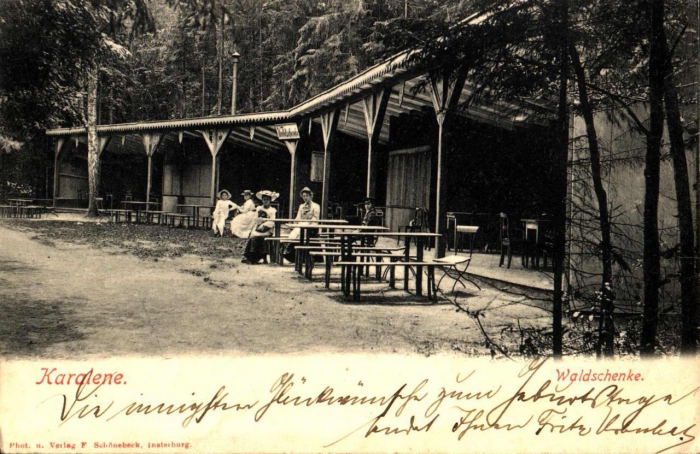 Karalene.
Waldschenke.
Die innigsten Glückwünsche zum Geburtstage
sendet Ihnen Fritz
Phot. u. Verlag F Schönebeck, Insterburg.